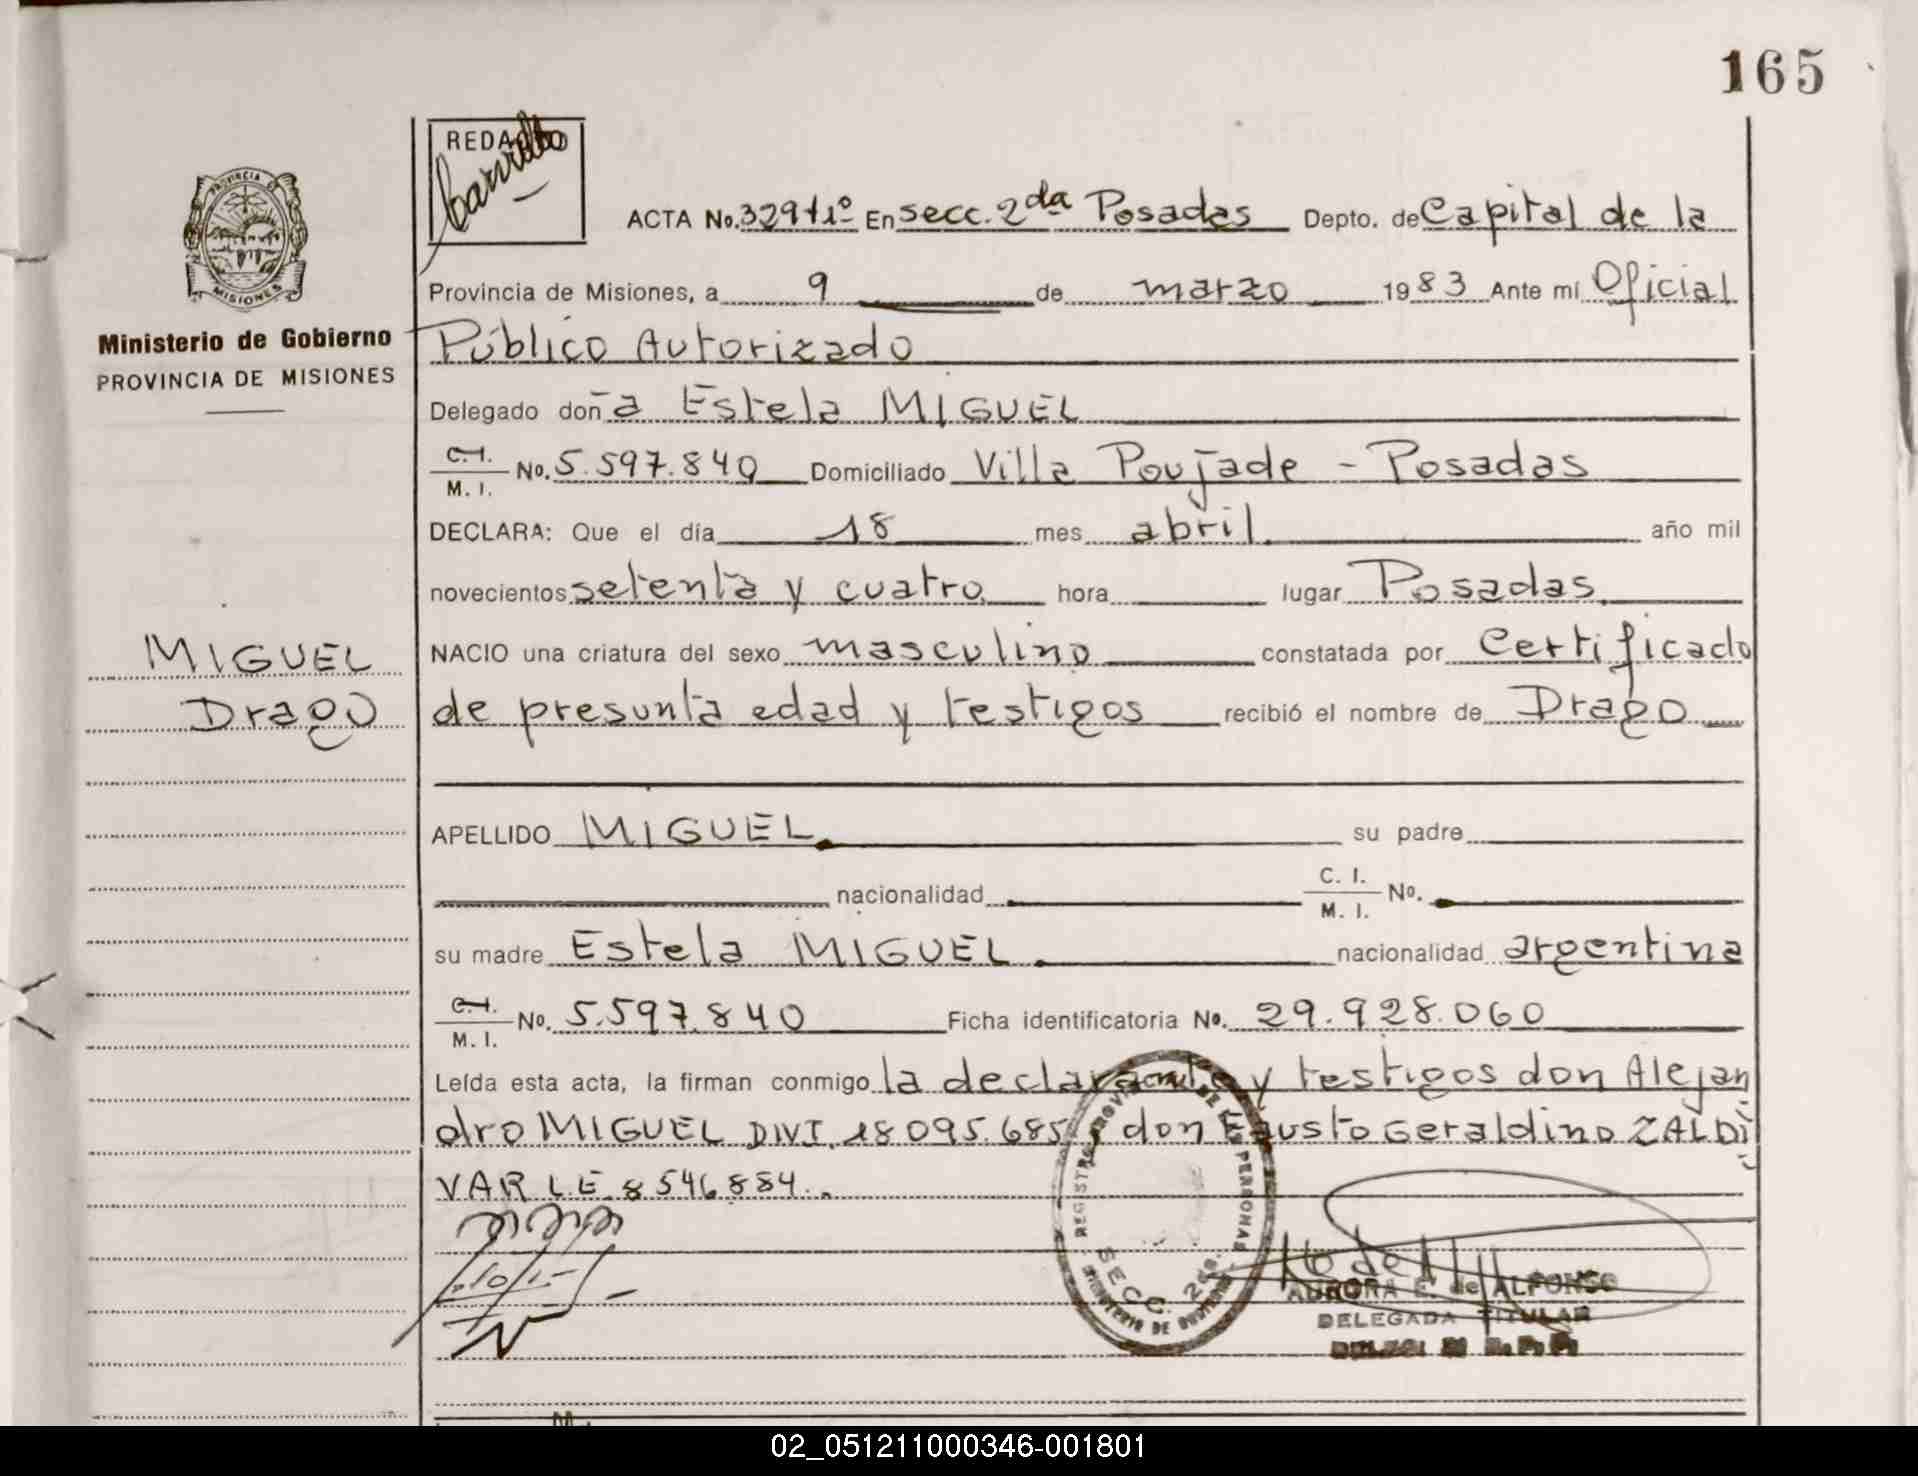 165
REDACTO
PROVINCIA DE
MISIONES
Ministerio de Gobierno
PROVINCIA DE MISIONES
ACTA No. 329 t1º En secc. 2da Posadas Depto. de Capital de la
Provincia de Misiones, a 9 de marzo 1983 Ante mí Oficial
Público Autorizado
Delegado doña Estela MIGUEL
C.I.
M. I. No. 5.597.840 Domiciliado Villa Poujade - Posadas
DECLARA: Que el día 18 mes abril año mil
novecientos setenta y cuatro hora lugar Posadas
MIGUEL
Drago
NACIO una criatura del sexo masculino constatada por Certificado
de presunta edad y testigos recibió el nombre de Drago
APELLIDO MIGUEL su padre
nacionalidad C. I.
M. I. No.
su madre Estela MIGUEL nacionalidad argentina
C.I.
M. I. No. 5.597.840 Ficha identificatoria No. 29.928.060
Leída esta acta, la firman conmigo la declarante y testigos don Alejan
dro MIGUEL DNI. 18095.685 y don Fausto Geraldino ZALDI
VAR L.E. 8546884.
REGISTRO PROVINCIAL DE LAS PERSONAS
SECC. 2da.
MINISTERIO DE GOBIERNO
AURORA E. de ALFONSO
DELEGADA TITULAR
02_051211000346-001801